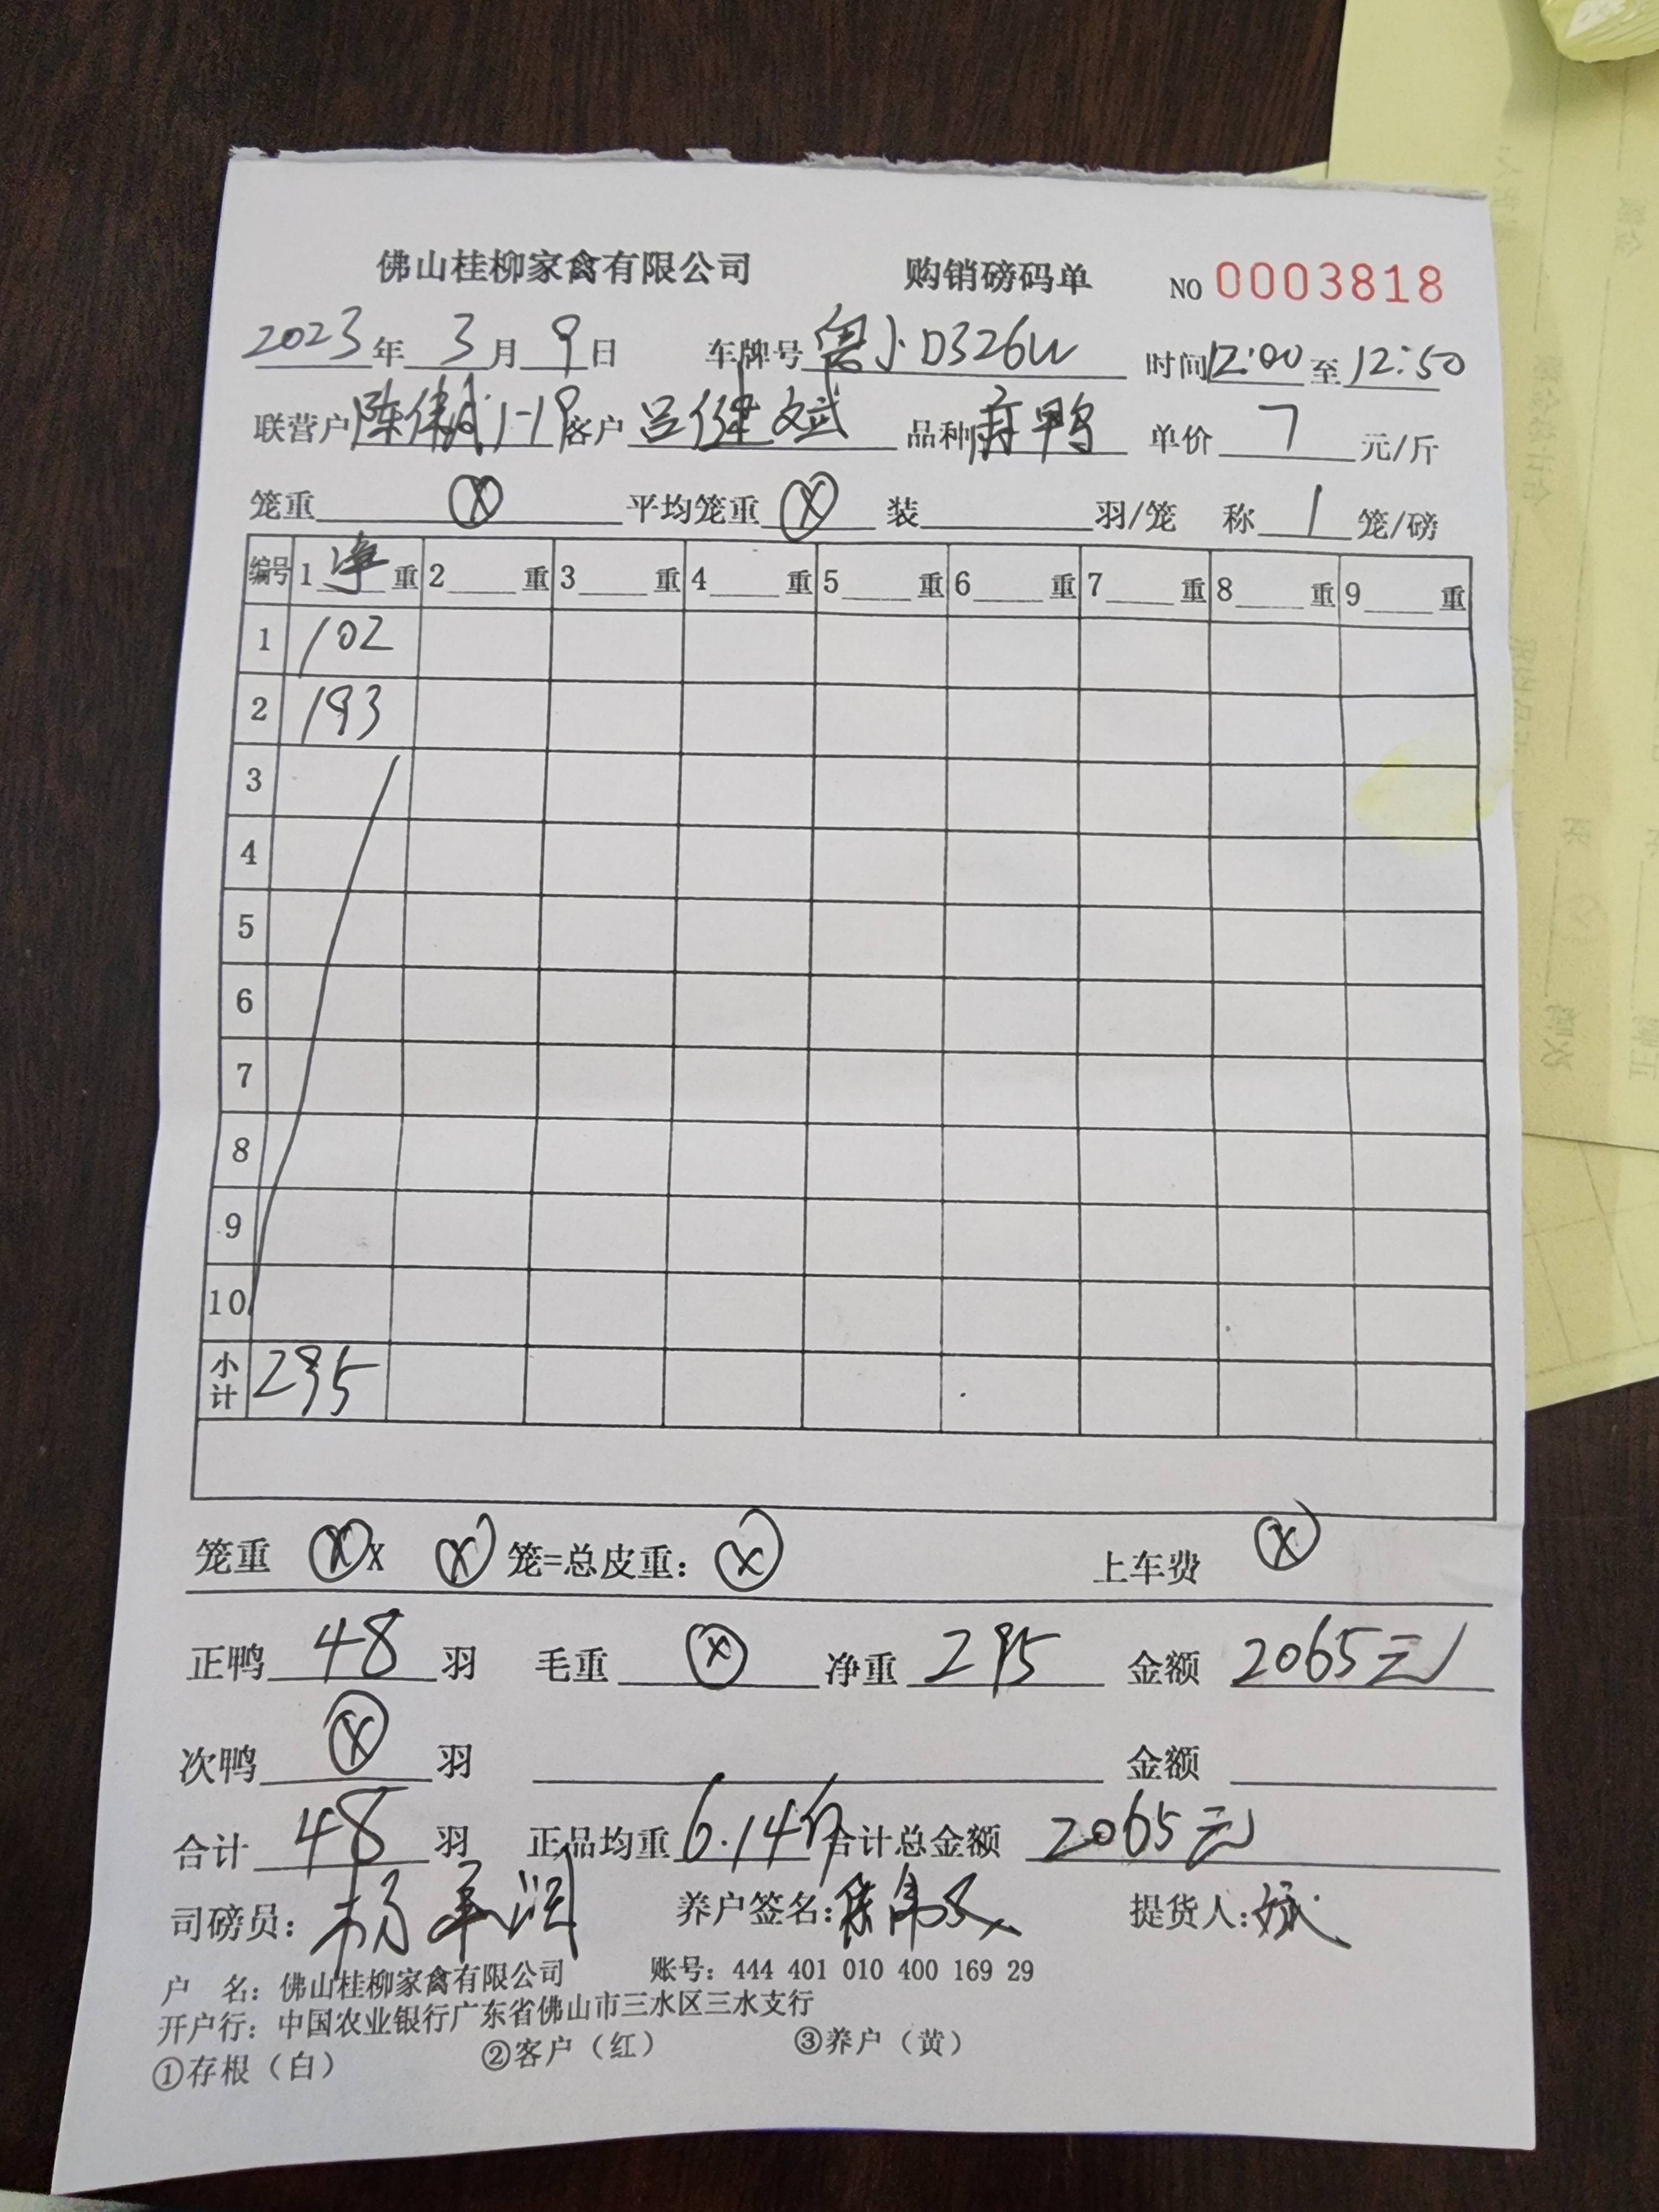 佛山桂柳家禽有限公司 购销磅码单 NO 0003818
2023年3月9日 车牌号 粤 D326W 时间12:00至12:50
联营户陈伟 1-19 客户 吕健斌 品种 鸭 单价 7 元/斤
笼重 ⓧ 平均笼重 ⓧ 装 羽/笼 称 1 笼/磅
编号 1净重 2 重 3 重 4 重 5 重 6 重 7 重 8 重 9 重
1 102
2 193
3
4
5
6
7
8
9
10
小计 295
笼重 ⓧ X ⓧ 笼=总皮重: ⓧ 上车费 ⓧ
正鸭 48 羽 毛重 ⓧ 净重 295 金额 2065元
次鸭 ⓧ 羽 金额
合计 48 羽 正品均重 6.14斤 合计总金额 2065元
司磅员: 杨 润 养户签名: 陈伟 提货人: 斌
户 名: 佛山桂柳家禽有限公司 账号: 444 401 010 400 169 29
开户行: 中国农业银行广东省佛山市三水区三水支行
①存根（白） ②客户（红） ③养户（黄）